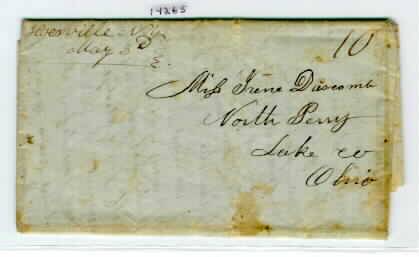 14265
N.Y.
May 3d
10
Miss Irene Dascomb
North Perry
Lake co
Ohio